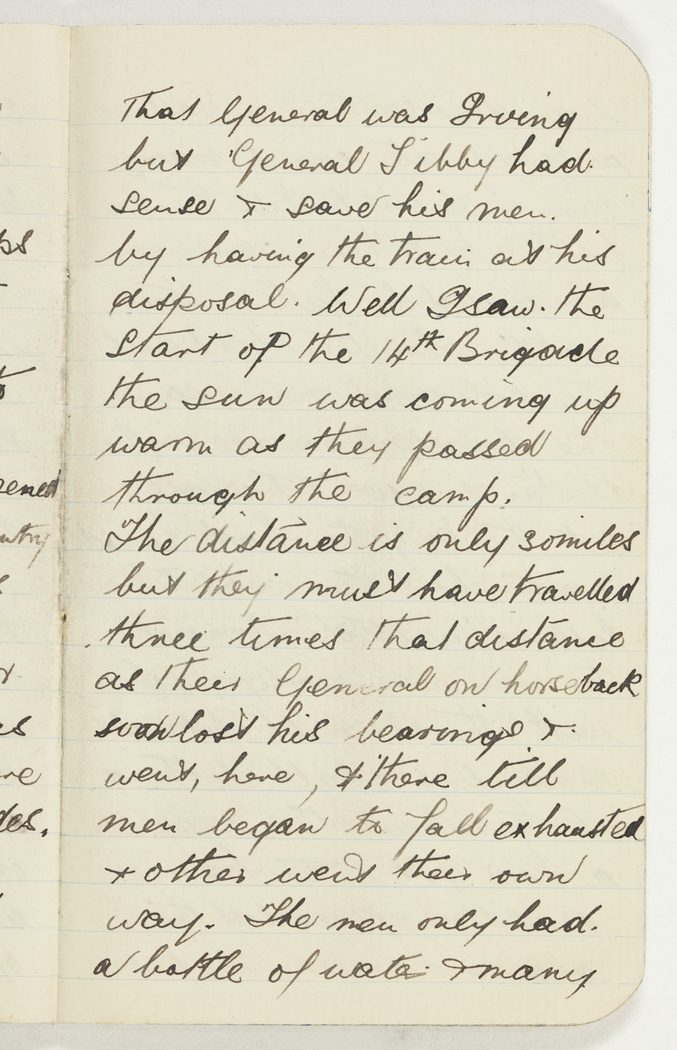 That General was Irving
but General Tibby had.
sense & save his men.
by having the train at his
disposal. Well I saw. the
Start of the 14th Brigade
the sun was coming up
warm as they passed
through the camp.
The distance is only 30 miles
but they must have travelled
three times that distance
as their General on horseback
soon lost his bearings &
went, here, & there till
men began to fall exhausted
& other went their own
way. The men only had.
a bottle of water & many
ps
des,